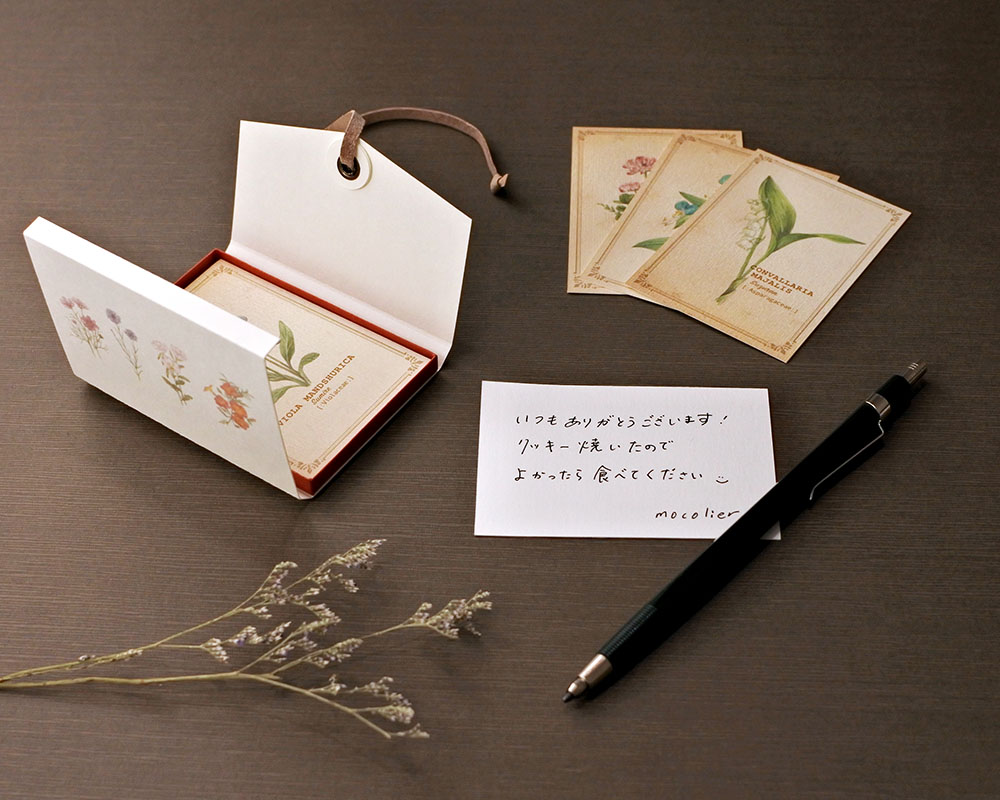 CONVALLARIA
MAJALIS
(Asparagaceae)
VIOLA MANDSHURICA
Sumire
(Violaceae)
いつもありがとうございます!
クッキー焼いたので
よかったら食べてください
mocolier